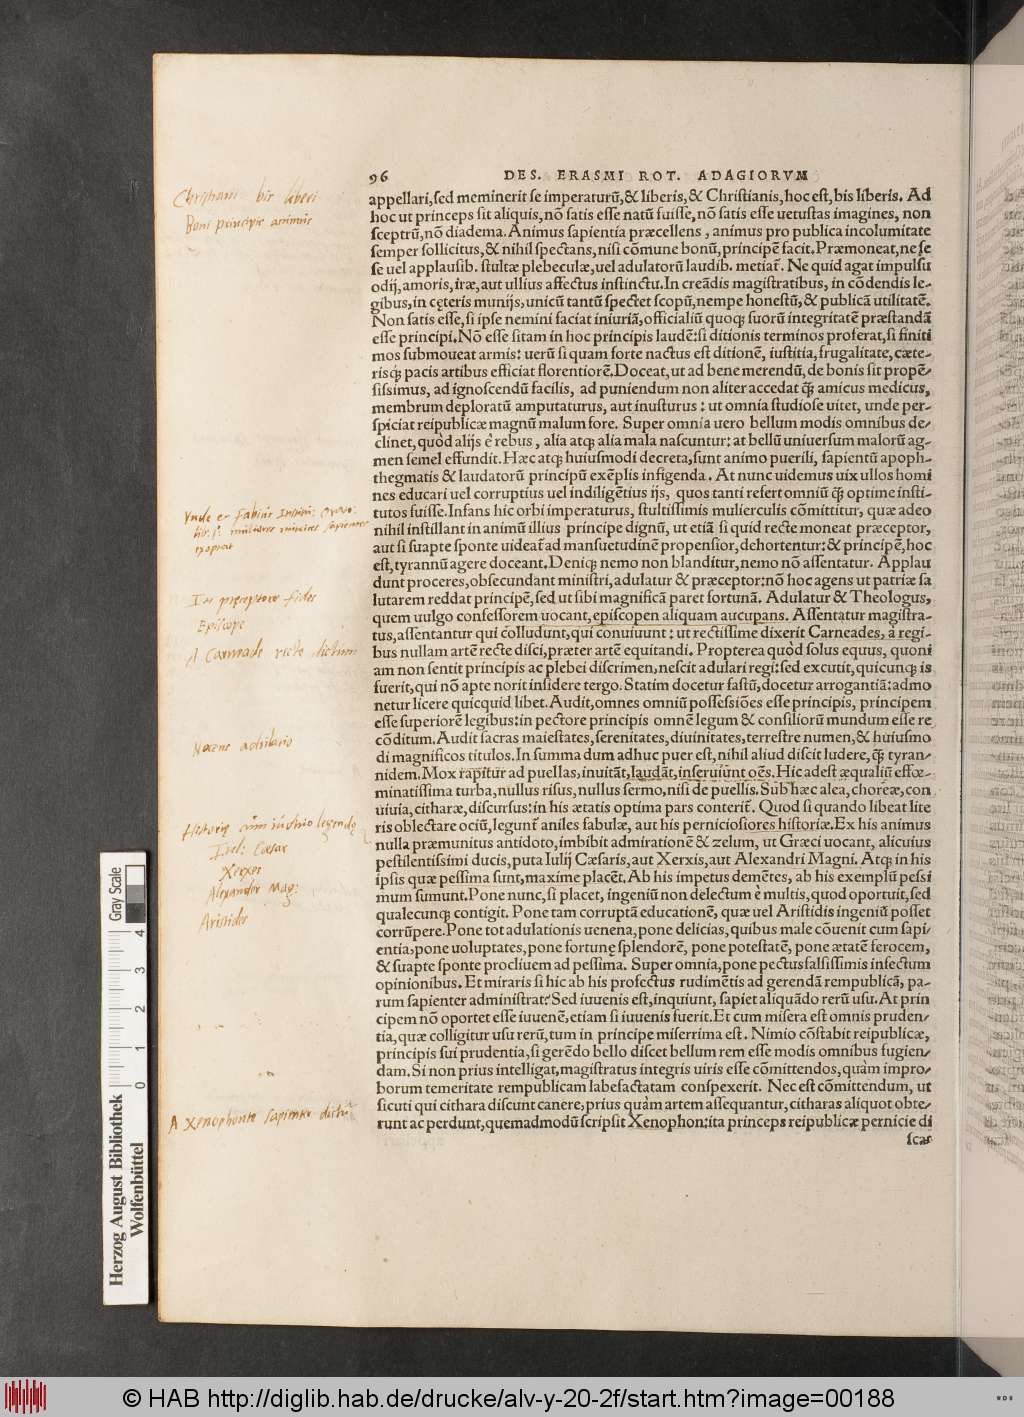 96 DES. ERASMI ROT. ADAGIORVM
appellari, sed meminerit se imperaturũ, & liberis, & Christianis, hoc est, bis liberis. Ad
hoc ut princeps sit aliquis, nõ satis esse natũ fuisse, nõ satis esse uetustas imagines, non
sceptrũ, nõ diadema. Animus sapientia præcellens, animus pro publica incolumitate
semper sollicitus, & nihil spectans, nisi cõmune bonũ, principẽ facit. Præmoneat, ne se
se uel applausib. stultæ plebeculæ, uel adulatorũ laudib. metiat᷑. Ne quid agat impulsu
odij, amoris, iræ, aut ullius affectus instinctu. In creãdis magistratibus, in cõdendis le-
gibus, in cęteris munijs, unicũ tantũ spectet scopũ, nempe honestũ, & publicã utilitatẽ.
Non satis esse, si ipse nemini faciat iniuriã, officialiũ quoqꝫ suorũ integritatẽ præstandã
esse principi. Nõ esse sitam in hoc principis laudẽ: si ditionis terminos proferat, si finiti
mos submoueat armis: uerũ si quam forte nactus est ditionẽ, iustitia, frugalitate, cæte-
risqꝫ pacis artibus efficiat florentiorẽ. Doceat, ut ad bene merendũ, de bonis sit propẽ-
sissimus, ad ignoscendũ facilis, ad puniendum non aliter accedat q̃ꝫ amicus medicus,
membrum deploratũ amputaturus, aut inusturus: ut omnia studiose uitet, unde per-
spiciat reipublicæ magnũ malum fore. Super omnia uero bellum modis omnibus de-
clinet, quòd alijs è rebus, alia atqꝫ alia mala nascuntur: at bellũ uniuersum malorũ ag-
men semel effundit. Hæc atqꝫ huiusmodi decreta, sunt animo puerili, sapientũ apoph-
thegmatis & laudatorũ principũ exẽplis infigenda. At nunc uidemus uix ullos homi
nes educari uel corruptius uel indiligẽtius ijs, quos tanti refert omniũ q̃ꝫ optime insti-
tutos fuisse. Infans hic orbi imperaturus, stultissimis mulierculis cõmittitur, quæ adeo
nihil instillant in animũ illius principe dignũ, ut etiã si quid recte moneat præceptor,
aut si suapte sponte uideat᷑ ad mansuetudinẽ propensior, dehortentur: & principẽ, hoc
est, tyrannũ agere doceant. Deniqꝫ nemo non blanditur, nemo nõ assentatur. Applau
dunt proceres, obsecundant ministri, adulatur & præceptor: nõ hoc agens ut patriæ sa
lutarem reddat principẽ, sed ut sibi magnificã paret fortunã. Adulatur & Theologus,
quem uulgo confessorem uocant, episcopen aliquam aucupans. Assentatur magistra-
tus, assentantur qui colludunt, qui conuiuunt: ut rectissime dixerit Carneades, à regi-
bus nullam artẽ recte disci, præter artẽ equitandi. Propterea quòd solus equus, quoni
am non sentit principis ac plebei discrimen, nescit adulari regi: sed excutit, quicunqꝫ is
fuerit, qui nõ apte norit insidere tergo. Statim docetur fastũ, docetur arrogantiã: admo
netur licere quicquid libet. Audit, omnes omniũ possessiões esse principis, principem
esse superiorẽ legibus: in pectore principis omnẽ legum & consiliorũ mundum esse re
cõditum. Audit sacras maiestates, serenitates, diuinitates, terrestre numen, & huiusmo
di magnificos titulos. In summa dum adhuc puer est, nihil aliud discit ludere, q̃ꝫ tyran-
nidem. Mox rapitur ad puellas, inuitãt, laudãt, inseruiũnt oẽs. Hic adest æqualiũ effœ-
minatissima turba, nullus risus, nullus sermo, nisi de puellis. Sub hæc alea, choreæ, con
uiuia, citharæ, discursus: in his ætatis optima pars conterit᷑. Quod si quando libeat lite
ris oblectare ociũ, legunt᷑ aniles fabulæ, aut his perniciosiores historiæ. Ex his animus
nulla præmunitus antidoto, imbibit admirationẽ & zelum, ut Græci uocant, alicuius
pestilentissimi ducis, puta Iulij Cæsaris, aut Xerxis, aut Alexandri Magni. Atqꝫ in his
ipsis quæ pessima sunt, maxime placẽt. Ab his impetus demẽtes, ab his exemplũ pessi
mum sumunt. Pone nunc, si placet, ingeniũ non delectum è multis, quod oportuit, sed
qualecunqꝫ contigit. Pone tam corruptã educationẽ, quæ uel Aristidis ingeniũ posset
corrũpere. Pone tot adulationis uenena, pone delicias, quibus male cõuenit cum sapi
entia, pone uoluptates, pone fortunę splendorẽ, pone potestatẽ, pone ætatẽ ferocem,
& suapte sponte procliuem ad pessima. Super omnia, pone pectus falsissimis infectum
opinionibus. Et miraris si hic ab his profectus rudimẽtis ad gerendã rempublicã, pa-
rum sapienter administrat? Sed iuuenis est, inquiunt, sapiet aliquãdo rerũ usu. At prin
cipem nõ oportet esse iuuenẽ, etiam si iuuenis fuerit. Et cum misera est omnis pruden-
tia, quæ colligitur usu rerũ, tum in principe miserrima est. Nimio cõstabit reipublicæ,
principis sui prudentia, si gerẽdo bello discet bellum rem esse modis omnibus fugien-
dam. Si non prius intelligat, magistratus integris uiris esse cõmittendos, quàm impro-
borum temeritate rempublicam labefactatam conspexerit. Nec est cõmittendum, ut
sicuti qui cithara discunt canere, prius quàm artem assequantur, citharas aliquot obte-
runt ac perdunt, quemadmodũ scripsit Xenophon: ita princeps reipublicæ pernicie di
scat
Christiani bis liberi
Boni principis animus
In pręceptore fides
Episcope
A Carneade recte dictum
Nocens adulatio
Historię cum iudicio legendę
Iul: Cæsar
Xerxes
Alexander Mag:
Aristides
A Xenophonte sapienter dictũ
Gray Scale
0 1 2 3 4
Herzog August Bibliothek
Wolfenbüttel
© HAB http://diglib.hab.de/drucke/alv-y-20-2f/start.htm?image=00188